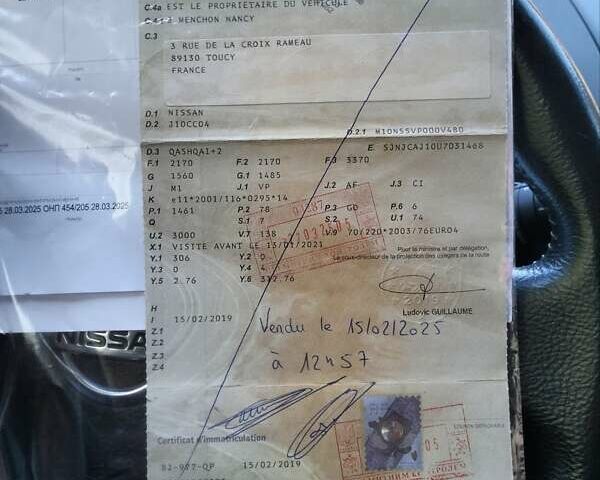 C.4a EST LE PROPRIETAIRE DU VEHICULE
C.4.1 MENCHON NANCY
C.3
3 RUE DE LA CROIX RAMEAU
89130 TOUCY
FRANCE
D.1 NISSAN
D.2 J10CC04
D.2.1 M10NSSVP000V480
D.3 QASHQAI+2 E. SJNJCAJ10U7031468
F.1 2170 F.2 2170 F.3 3370
G 1560 G.1 1485
J M1 J.1 VP J.2 AF J.3 CI
K e11*2001/116*0295*14
P.1 1461 P.2 78 P.3 GO P.6 6
Q S.1 7 S.2 U.1 74
U.2 3000 V.7 138 V.9 70/220*2003/76EURO4
X.1 VISITE AVANT LE 13/01/2021
Y.1 306 Y.2 0
Y.3 0 Y.4 4
Y.5 2.76 Y.6 312.76
Pour le ministre et par délégation,
Le sous-directeur de la protection des usagers de la route
Ludovic GUILLAUME
H
I 15/02/2019
Z.1
Z.2
Z.3
Z.4
Vendu le 15/02/2025
à 12h57
Certificat d'immatriculation
15/02/2019
COUPON DÉTACHABLE
28.03.2025 ОНП 454/205 28.03.2025
NISSAN
05